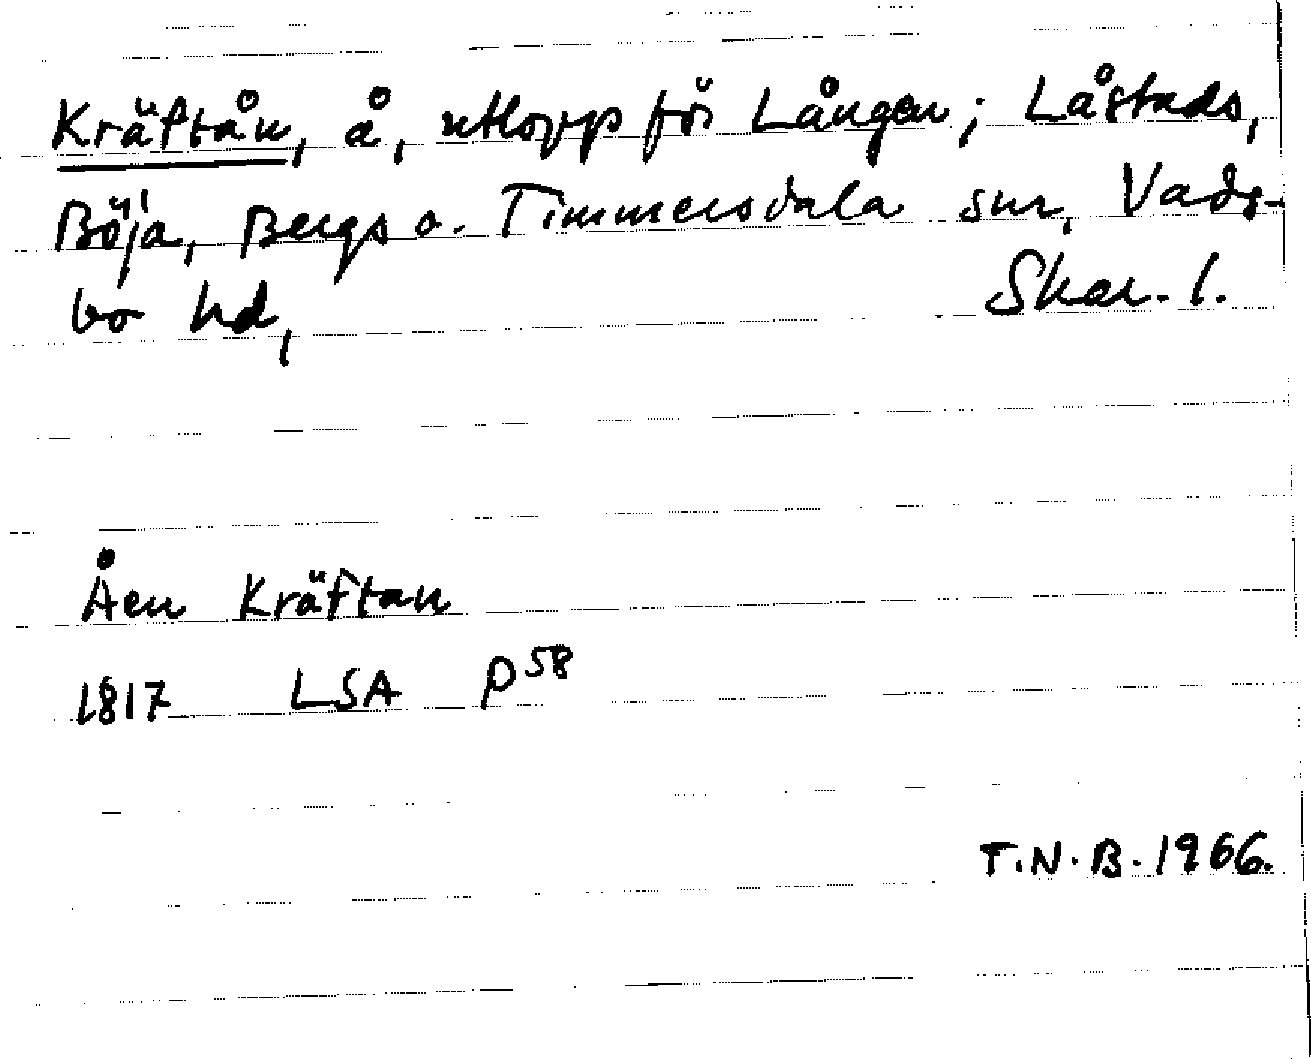 Kräftån, å, utlopp för Lången; Låstads,
Böja, Bergs o. Timmersdala snr, Vads-
bo hd, Skar. l.
Åen Kräftan
1817 LSA P58
T.N.B. 1966.